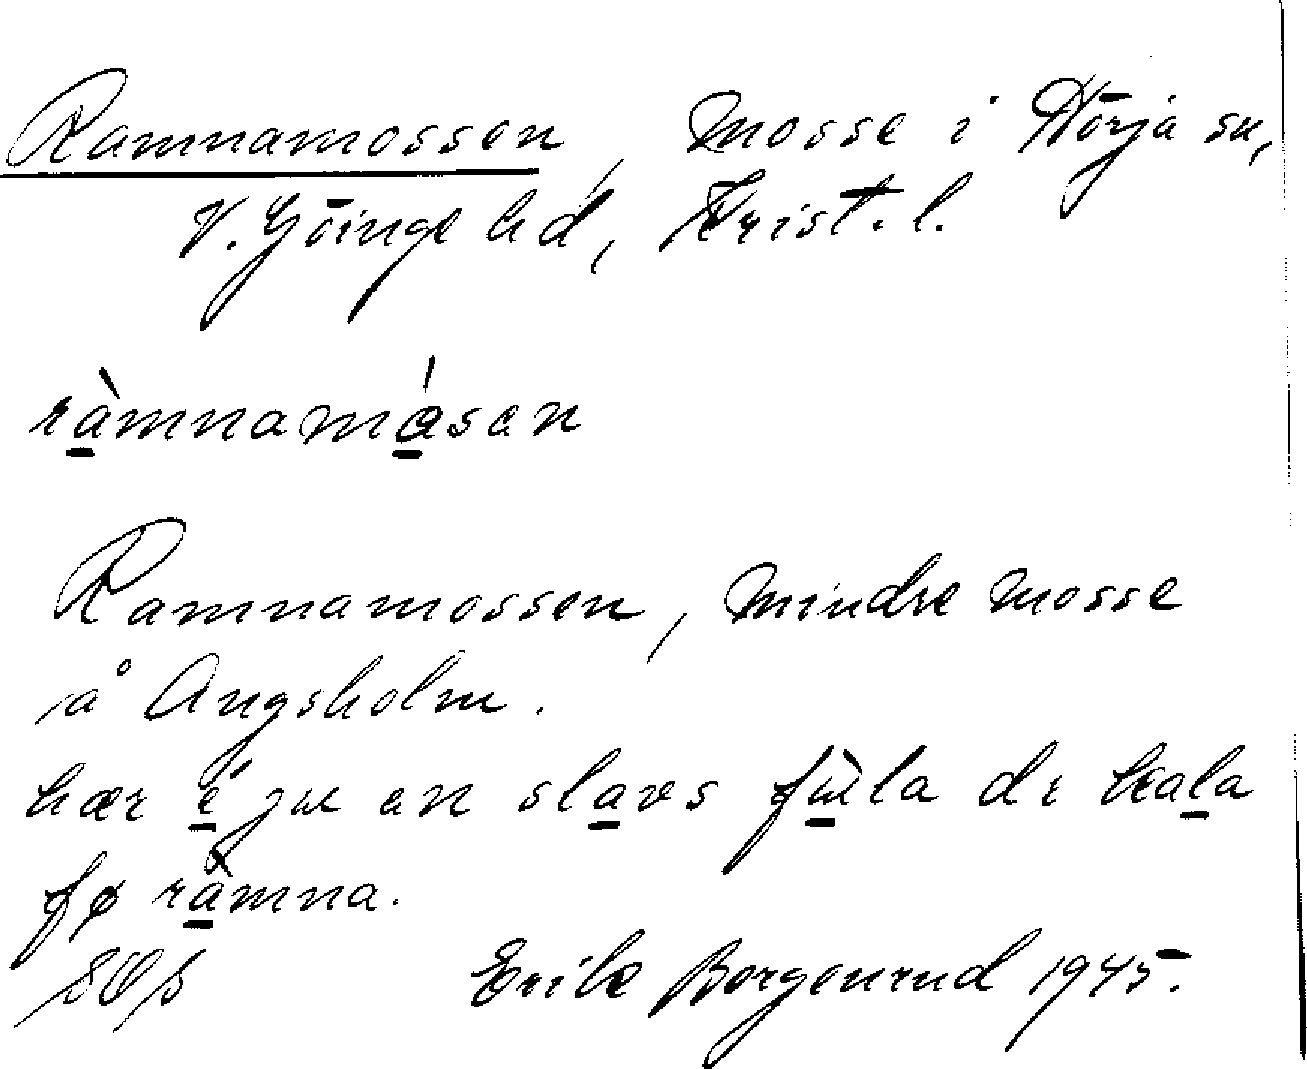 Ramnamossen, Mosse i Hörja sn,
V. Göinge hd, Krist. l.
ràmnamásen
Ramnamossen, mindre mosse
på Angsholm.
hær é ju en slavs fùla di kala
fø ràmna.
Erik Borgenrud 1945.